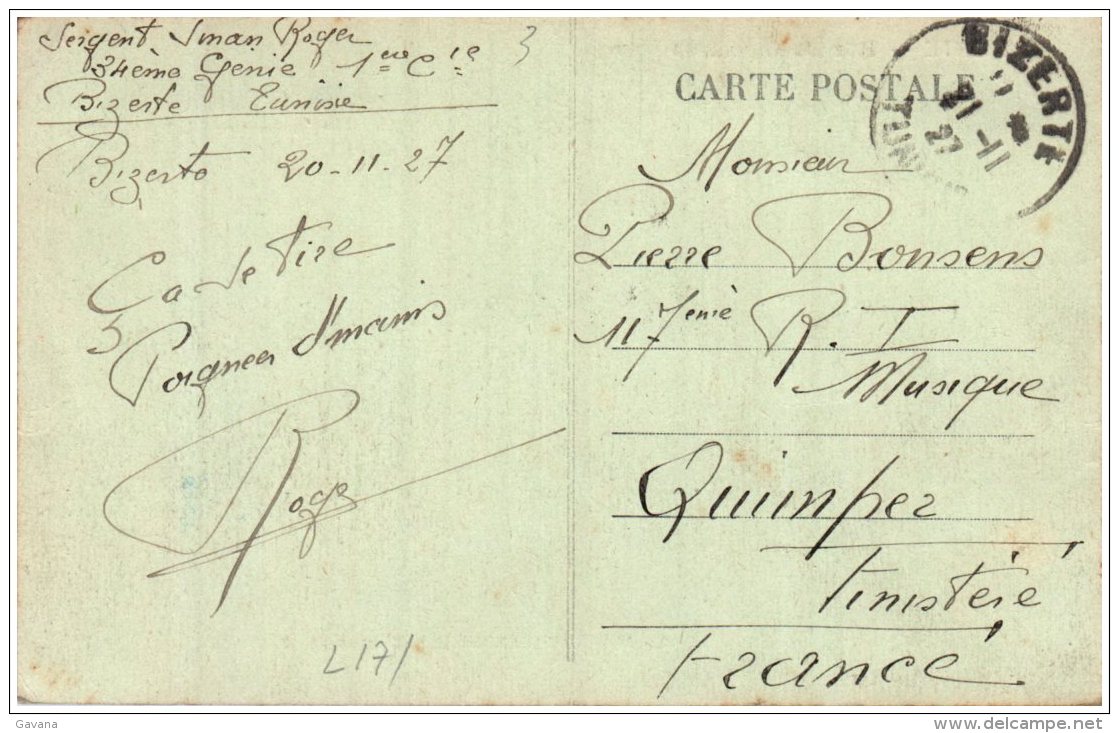 Sergent Iman Roger
34ème Génie 1ère Cie
Bizerte Tunisie
3
Bizerte 20-11-27
Ca se tire
5
Poignées d'mains
Roger
L171
CARTE POSTALE
BIZERTE
21-11
27
Monsieur
Pierre Bonsens
117ème R. I
Musique
Quimper
Finistère
France
Gavana
www.delcampe.net